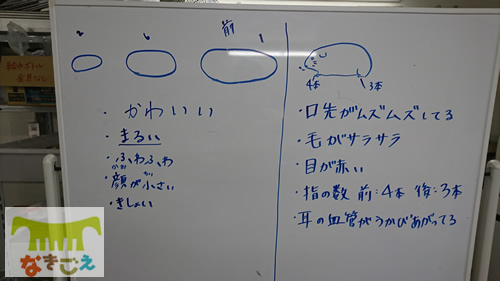 前
2
6
1
・かわいい
・まるい
・ふわふわ
・顔が小さい
・きしょい
4本
3本
・口先がムズムズしてる
・毛がサラサラ
・目が赤い
・指の数 前:4本 後:3本
・耳の血管がうかびあがってる
なきごえ